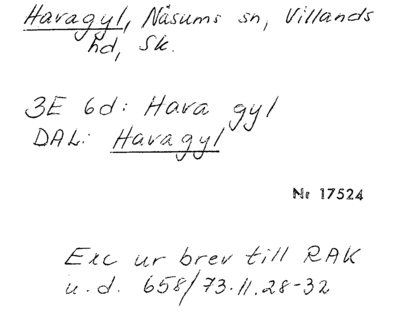 Havagyl, Näsums sn, Villands
hd, Sk.
3E 6d: Hava gyl
DAL: Havagyl
Nr 17524
Exc ur brev till RAK
u.d. 658/73.11.28-32